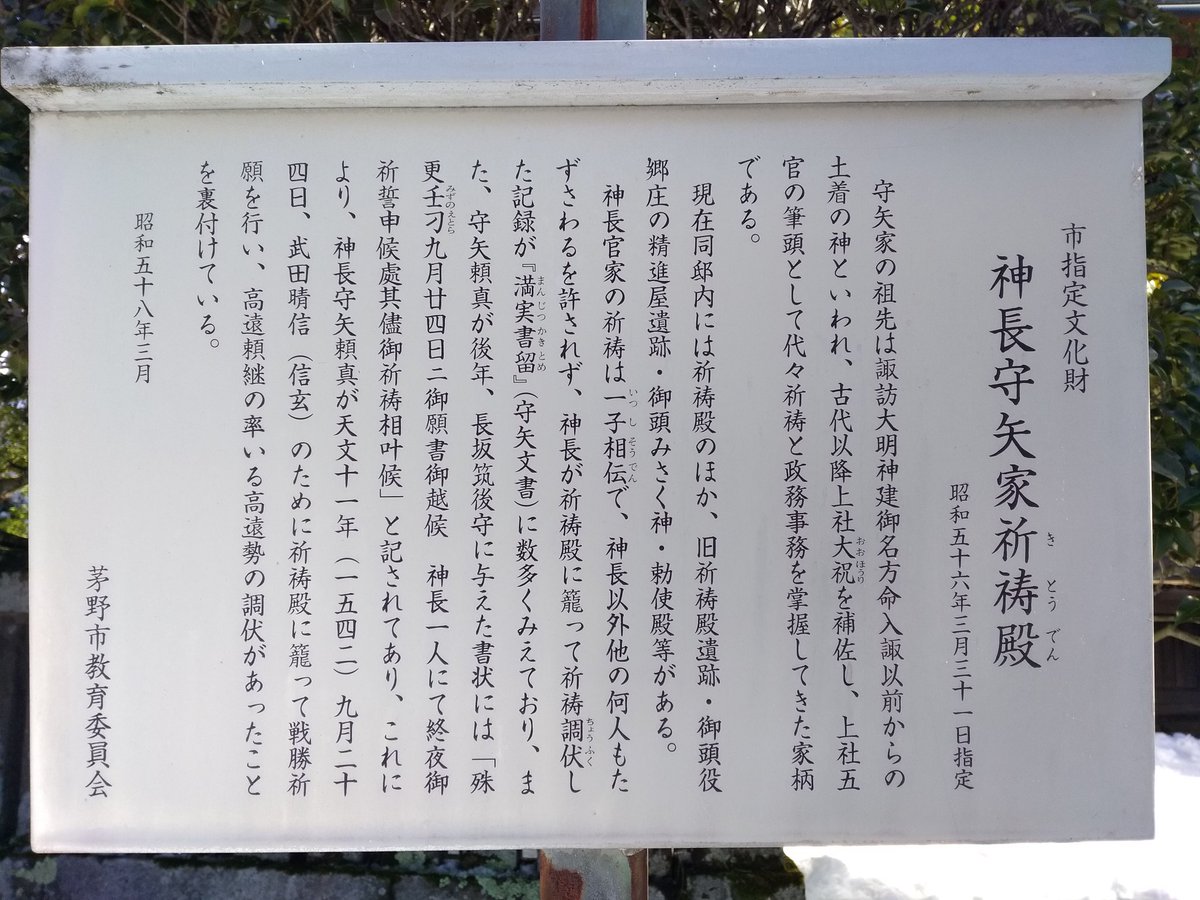 市指定文化財
神長守矢家祈祷殿
きとうでん
昭和五十六年三月三十一日指定
守矢家の祖先は諏訪大明神建御名方命入諏以前からの
土着の神といわれ、古代以降上社大祝を補佐し、上社五
おおほうり
官の筆頭として代々祈祷と政務事務を掌握してきた家柄
である。
現在同邸内には祈祷殿のほか、旧祈祷殿遺跡・御頭役
郷庄の精進屋遺跡・御頭みさく神・勅使殿等がある。
神長官家の祈祷は一子相伝で、神長以外他の何人もた
いつしそうでん
ずさわるを許されず、神長が祈祷殿に籠って祈祷調伏し
ちょうふく
た記録が『満実書留』(守矢文書)に数多くみえており、ま
まんじつかきとめ
た、守矢頼真が後年、長坂筑後守に与えた書状には「殊
更壬刁九月廿四日ニ御願書御越候　神長一人にて終夜御
みずのえとら
祈誓申候處其儘御祈祷相叶候」と記されてあり、これに
より、神長守矢頼真が天文十一年（一五四二）九月二十
四日、武田晴信（信玄）のために祈祷殿に籠って戦勝祈
願を行い、高遠頼継の率いる高遠勢の調伏があったこと
を裏付けている。
昭和五十八年三月
茅野市教育委員会